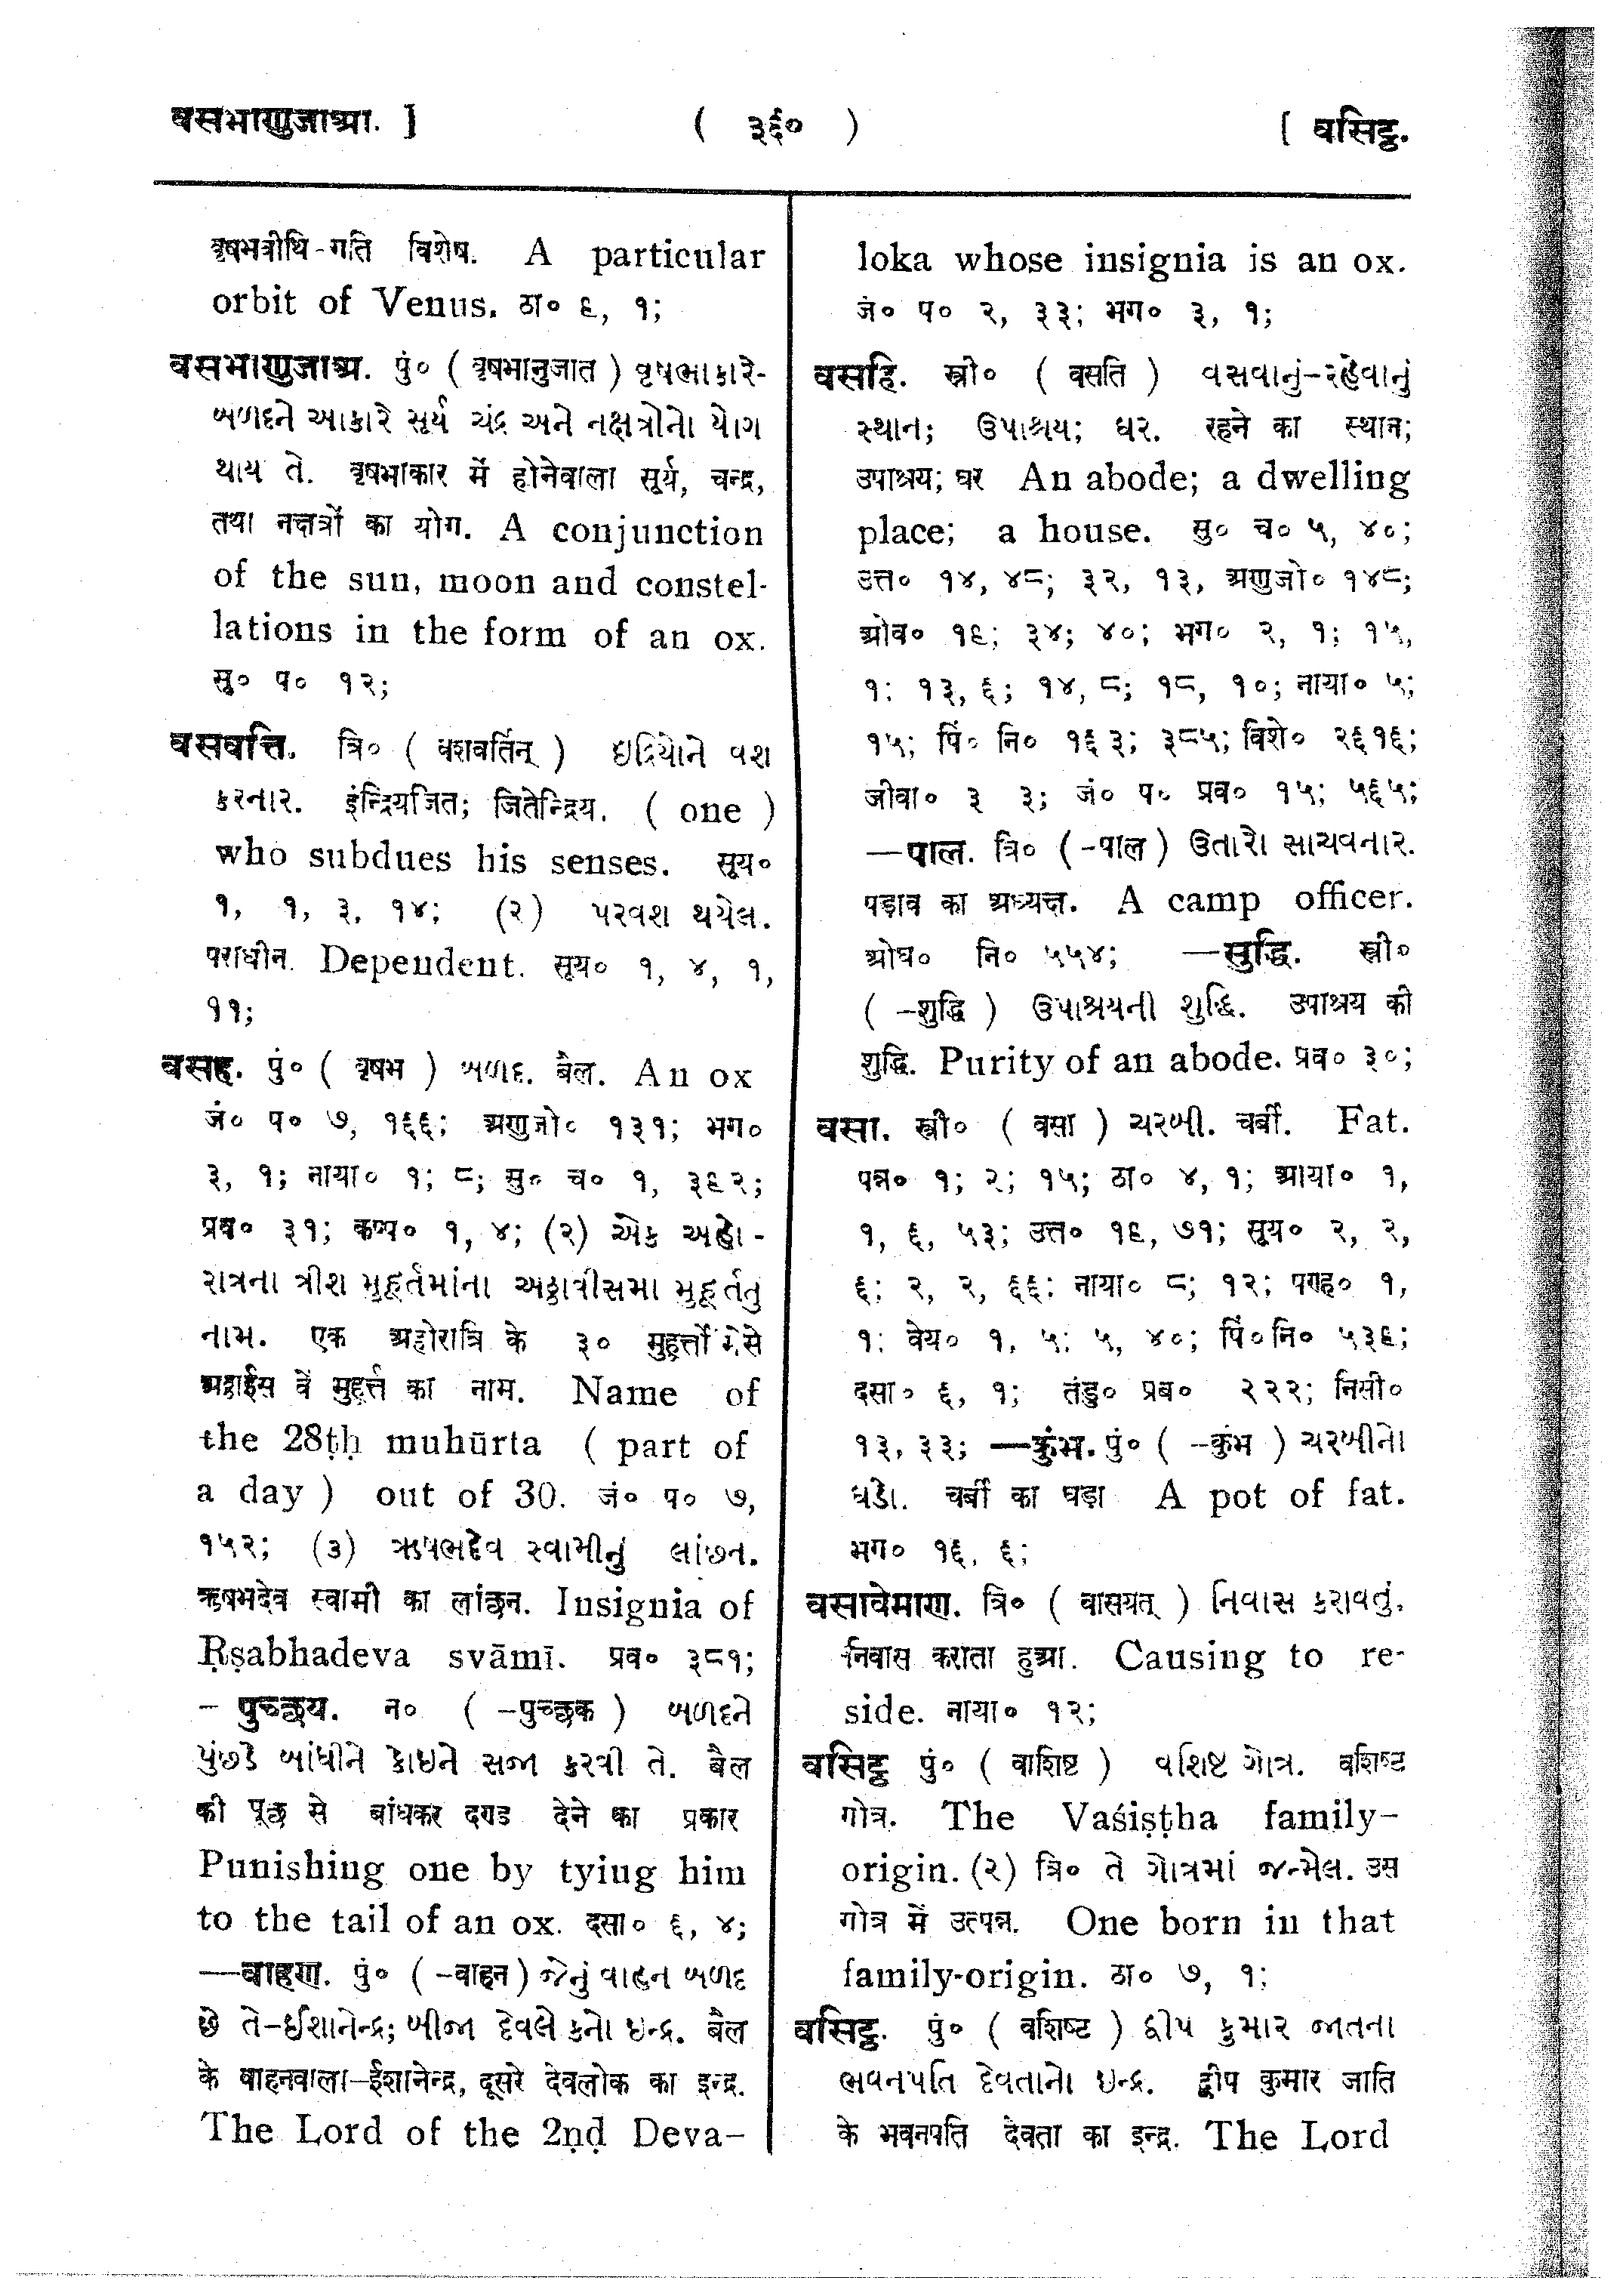 वसभाणुजाअ. ] ( ३६० ) [ वसिट्ठ.
वृषभवीथि-गति विशेष. A particular
orbit of Venus. ठा० ६, १;
वसभाणुजाअ. पुं० ( वृषभानुजात ) વૃષભાકારે-
બળદને આકારે સૂર્ય ચંદ્ર અને નક્ષત્રોનો યોગ
થાય તે. वृषभाकार में होनेवाला सूर्य, चन्द्र,
तथा नक्षत्रों का योग. A conjunction
of the sun, moon and constel-
lations in the form of an ox.
सु० प० १२;
वसवत्ति. त्रि० ( वशवर्तिन् ) ઇંદ્રિયોને વશ
કરનાર. इंन्द्रियजित; जितेन्द्रिय. ( one )
who subdues his senses. सूय०
१, १, ३, १४; (२) પરવશ થયેલ.
पराधीन. Dependent. सूय० १, ४, १,
११;
वसह. पुं० ( वृषभ ) બળદ. बैल. An ox
जं० प० ७, १६६; अणुजो० १३१; भग०
३, १; नाया० १; ८; सु० च० १, ३६२;
प्रव० ३१; कप्प० १, ४; (२) એક અહો-
રાત્રના ત્રીશ મુહૂર્તમાંના અઠ્ઠાત્રીસમા મુહૂર્તતુ
નામ. एक अहोरात्रि के ३० मुहूर्त्तों मेंसे
अट्ठाईस वें मुहूर्त्त का नाम. Name of
the 28ṭḥ muhūrta ( part of
a day ) out of 30. जं० प० ७,
१५२; (३) ઋષભદેવ સ્વામીનું લાંછન.
ऋषभदेव स्वामी का लांछन. Insignia of
Ṛṣabhadeva svāmī. प्रव० ३८१;
- पुच्छय. न० ( -पुच्छक ) બળદને
પુંછડે બાંધીને કોઇને સજા કરવી તે. बैल
की पूछ से बांधकर दण्ड देने का प्रकार
Punishing one by tyiug him
to the tail of an ox. दसा० ६, ४;
—वाहण. पुं० ( -वाहन ) જેનું વાહન બળદ
છે તે-ઈશાનેન્દ્ર; બીજા દેવલે કનો ઇન્દ્ર. बैल
के वाहनवाला-ईशानेन्द्र, दूसरे देवलोक का इन्द्र.
The Lord of the 2ṇḍ Deva-
loka whose insignia is an ox.
जं० प० २, ३३; भग० ३, १;
वसहि. स्त्री० ( वसति ) વસવાનું-રહેવાનું
સ્થાન; ઉપાશ્રય; ઘર. रहने का स्थान;
उपाश्रय; घर An abode; a dwelling
place; a house. सु० च० ५, ४०;
उत्त० १४, ४८; ३२, १३, अणुजो० १४८;
ओव० १६; ३४; ४०; भग० २, १; १५,
१: १३, ६; १४, ८; १८, १०; नाया० ५;
१५; पिं० नि० १६३; ३८५; विशे० २६१६;
जीवा० ३ ३; जं० प० प्रव० १५; ५६५;
—पाल. त्रि० ( -पाल ) ઉતારો સાચવનાર.
पड़ाव का अध्यक्ष. A camp officer.
ओघ० नि० ५५४; —सुद्धि. स्त्री०
( -शुद्धि ) ઉપાશ્રયની શુદ્ધિ. उपाश्रय की
शुद्धि. Purity of an abode. प्रव० ३०;
वसा. स्त्री० ( वसा ) ચરબી. चर्बी. Fat.
पन्न० १; २; १५; ठा० ४, १; आया० १,
१, ६, ५३; उत्त० १६, ७१; सूय० २, २,
६; २, २, ६६: नाया० ८; १२; पण्ह० १,
१: वेय० १, ५: ५, ४०; पिं० नि० ५३६;
दसा० ६, १; तंडु० प्रव० २२२; निसी०
१३, ३३; —कुंभ. पुं० ( -कुंभ ) ચરબીનો
ઘડો. चर्बी का घड़ा A pot of fat.
भग० १६, ६;
वसावेमाण. त्रि० ( वासयत् ) નિવાસ કરાવતું.
निवास कराता हुआ. Causing to re-
side. नाया० १२;
वसिट्ठ पुं० ( वाशिष्ट ) વશિષ્ટ ગોત્ર. वशिष्ट
गोत्र. The Vaśiṣṭha family-
origin. (२) त्रि० તે ગોત્રમાં જન્મેલ. उस
गोत्र में उत्पन्न. One born in that
family-origin. ठा० ७, १;
वसिट्ठ. पुं० ( वशिष्ट ) દ્વીપ કુમાર જાતના
ભવનપતિ દેવતાનો ઇન્દ્ર. द्वीप कुमार जाति
के भवनपति देवता का इन्द्र. The Lord